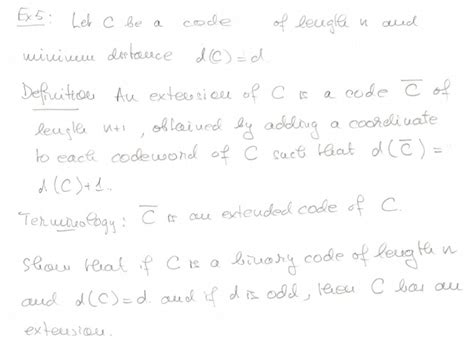 Ex5: Let C be a code of length n and
minimum distance d(C)=d.
Definition An extension of C is a code C̅ of
length n+1, obtained by adding a coordinate
to each codeword of C such that d(C̅)=
d(C)+1.
Terminology: C̅ is an extended code of C.
Show that if C is a binary code of length n
and d(C)=d. and if d is odd, then C has an
extension.